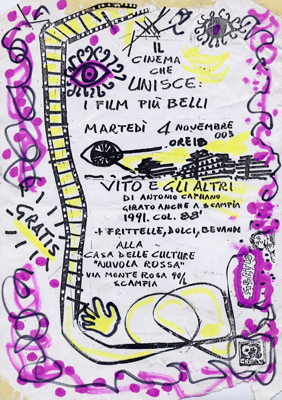 IL
CINEMA
CHE
UNISCE:
I FILM PIÙ BELLI
MARTEDÌ 4 NOVEMBRE
003
ORE 18
VITO E GLI ALTRI
DI ANTONIO CAPUANO
GIRATO ANCHE A SCAMPIA
1991. COL. 88'
+ FRITTELLE, DOLCI, BEVANDE
GRATIS
ALLA
CASA DELLE CULTURE
"NUVOLA ROSSA"
VIA MONTE ROSA 90/b
SCAMPIA